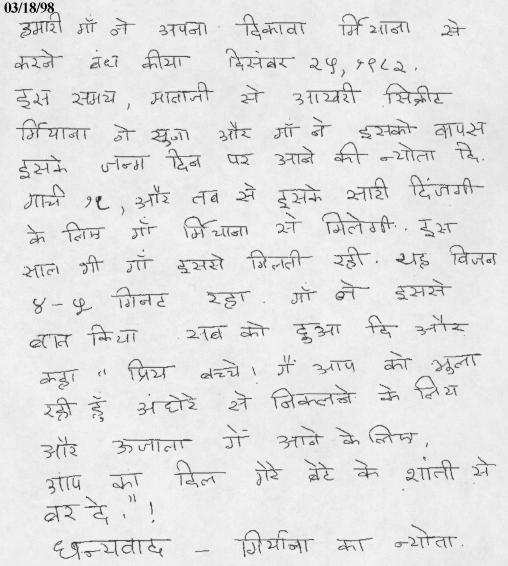 03/18/98
हमारी माँ ने अपना दिकावा मिर्याना से
करने बंध कीया दिसंबर २५, १९८२.
इस समय, माताजी से आखरी सिक्रीट
मिर्याना ने सूना और माँ ने इसको वापस
इसके जन्म दिन पर आने की न्योता दि.
मार्च १८, और तब से इसके सारी दिंजगी
के लिए माँ मिर्याना से मिलेगी. इस
साल भी माँ इससे मिलती रही. यह विजन
४-५ मिनट रहा. माँ ने इससे
बात किया सब को दुआ दि और
कहा " प्रिय बच्चे! मैं आप को बूला
रही हूँ अंधोरे से निकलने के लिय
और ऊजाला में आने के लिए,
आप का दिल मेरे बेटे के शांती से
बर दे."!
धन्यवाद - मिर्याना का न्योता.